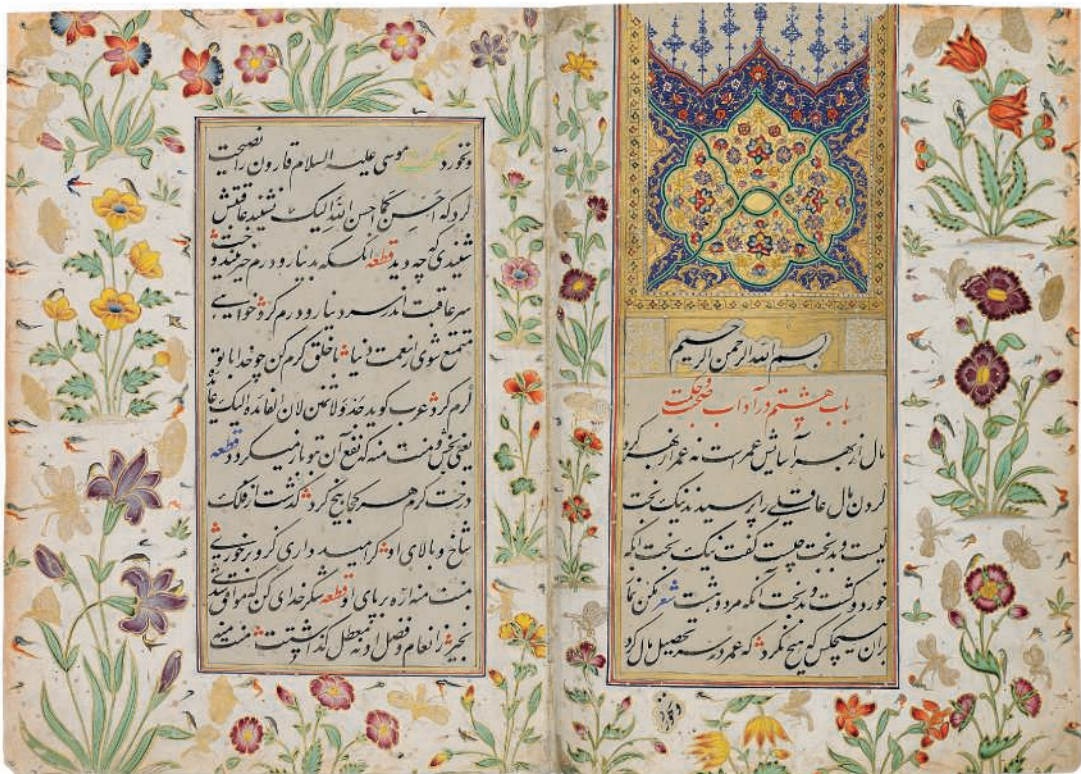 بسم الله الرحمن الرحیم
باب هشتم در آداب صحبت
مال از بهر آسایش عمرست نه عمر از بهر کرد
کردن مال عاقلی را پرسیدند نیک بخت
کیست و بدبخت چیست گفت نیک بخت آنکه
خورد و کشت و بدبخت آنکه مرد و هشت شعر مکن نما
بران هیچکس که هیچ نکرد که عمر در سر تحصیل مال کرد
و نخورد
و نخورد حکمت موسی علیه السلام قارون را نصیحت
کرد که احسن کما احسن الله الیک نشنید عاقبتش
شنیدی که چه دید قطعه آنکس که بدینار و درم خیر نیندوخت
سر عاقبت اندر سر دینار و درم کرد خواهی
متمتع شوی از نعمت دنیا با خلق کرم کن چو خدا با تو
کرم کرد عرب کوید جد ولا تمنن لان الفائده الیک عائده
یعنی بخش و منت منه که نفع آن بتو باز میکردد قطعه
درخت کرم هر کجا بیخ کرد کذشت از فلک
شاخ و بالای او کر امیدواری کزو برخوری
بمنت منه اره بر پای او قطعه شکر خدای کن که موافق شدی
بخیر ز انعام و فضل او نه معطل کذاشتت منت منه